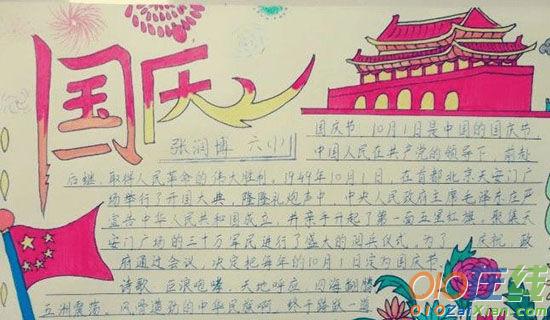 国庆
张润博 六(1)
国庆节,10月1日是中国的国庆节,
中国人民在共产党的领导下,前赴
后继,取得人民革命的伟大胜利,1949年10月1日,在首都北京天安门广
场举行了开国大典,隆隆礼炮声中,中央人民政府主席毛泽东庄严
宣告中华人民共和国成立,并亲手升起了第一面五星红旗,聚集天
安门广场的三十万军民进行了盛大的阅兵仪式,为了庆祝,政
府通过会议,决定把每年的10月1日定为国庆节。
诗歌,巨浪咆哮,天地呼应,四海翻腾
五洲震荡,风骨遒劲的中华民族啊,终于踏
在线
ZaiXian.com